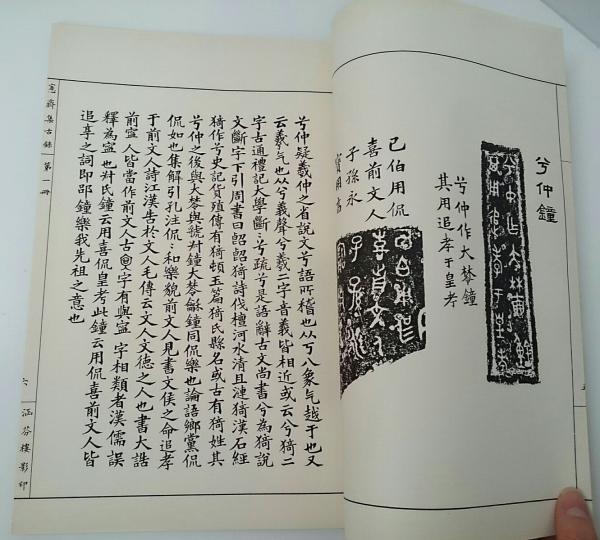 兮仲鐘
兮仲作大棽鐘
其用追孝于皇考
己伯用侃
喜前文人
子孫永
寶用
兮仲疑羲仲之省說文兮語所稽也从丂八象气越于也又
云羲气也从兮義聲兮羲二字音義皆相近或云兮猗二
字古通禮記大學斷:兮疏兮是語辭古文尚書兮為猗說
文斷字下引周書曰:猗詩伐檀河水清且漣猗漢石經
猗作兮史記貨殖傳有猗頓玉篇猗氏縣名或古有猗姓其
兮仲之後與大棽與虢叔鐘大棽龢鐘同侃樂也論語鄉黨侃
侃如也集解引孔注侃:和樂貌前文人見書文侯之命追孝
于前文人詩江漢告於文人毛傳云文人文德之人也書大誥
前寍人皆當作前文人古字有與寍字相類者漢儒誤
釋為寍也叔氏鐘云用喜侃皇考此鐘云用侃喜前文人皆
追享之詞即郘鐘樂我先祖之意也
愙齋集古錄 第一冊
六 涵芬樓影印